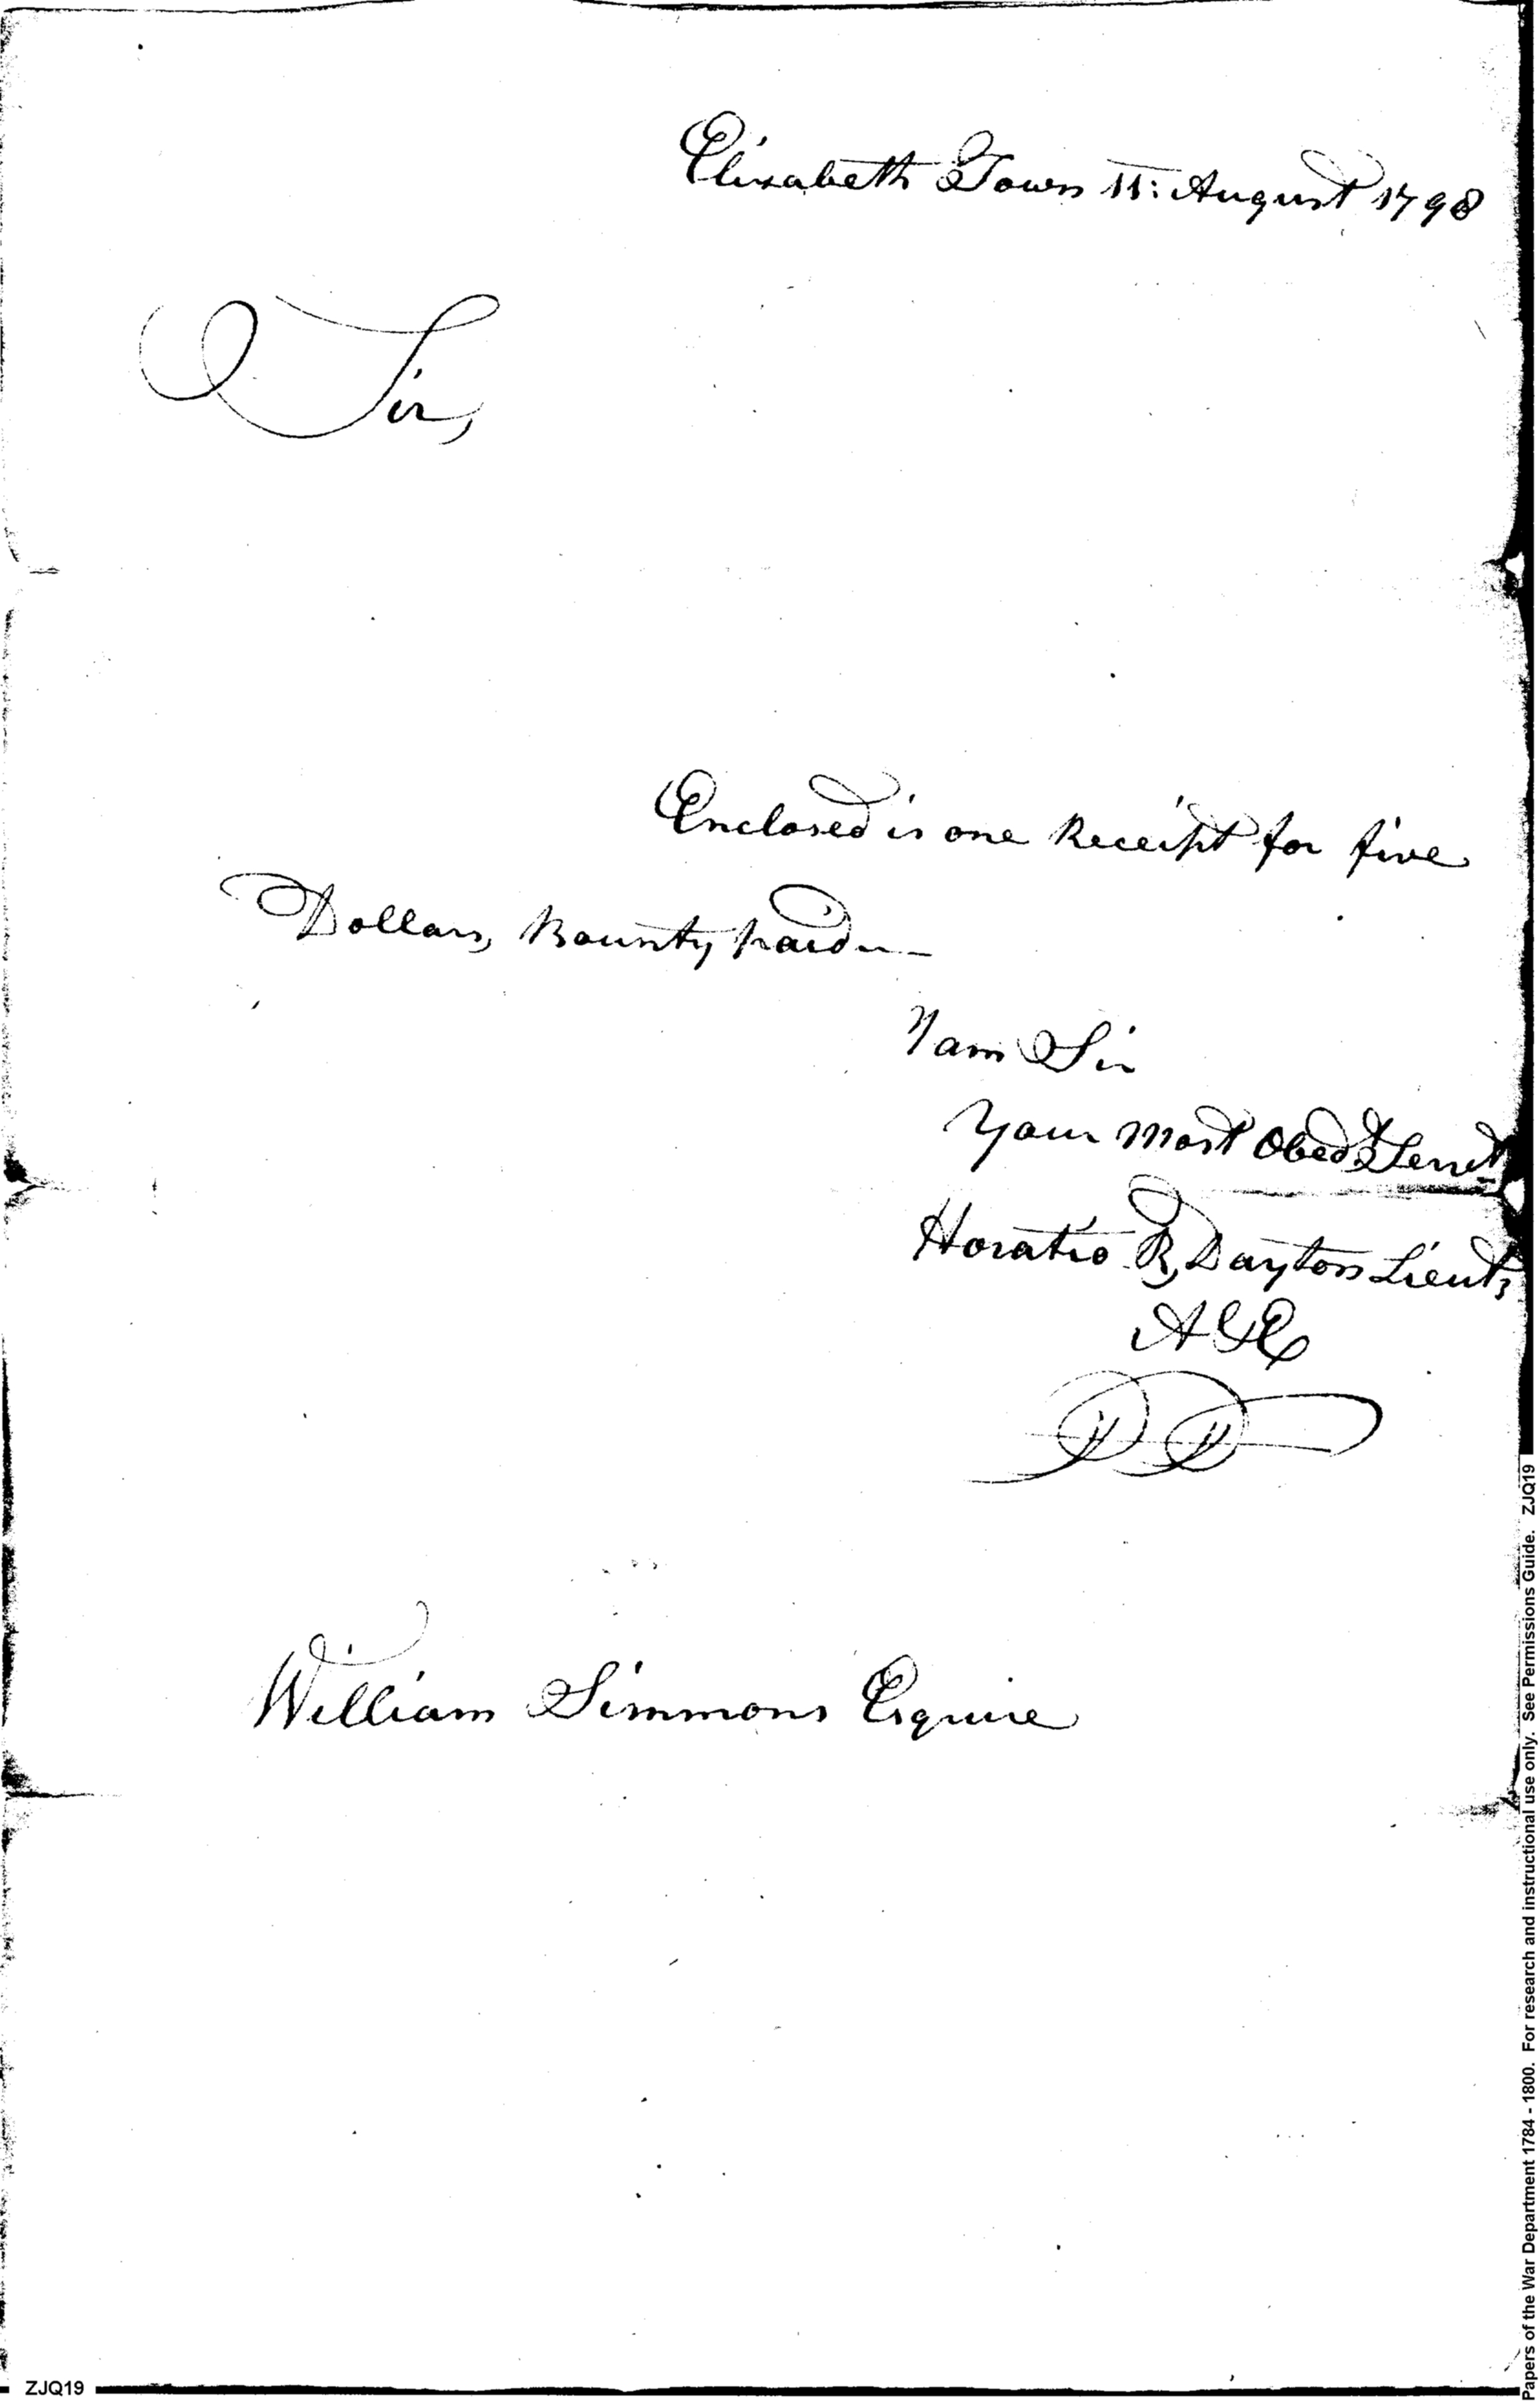 Elizabeth Town 11: August 1798
Sir,
Enclosed is one Receipt for five
Dollars, Bounty paid
I am Sir
Your most Obed.t Servt
Horatio R, Dayton Lieut,
William Simmons Esquire
Papers of the War Department 1784 - 1800. For research and instructional use only. See Permissions Guide. ZJQ19
ZJQ19